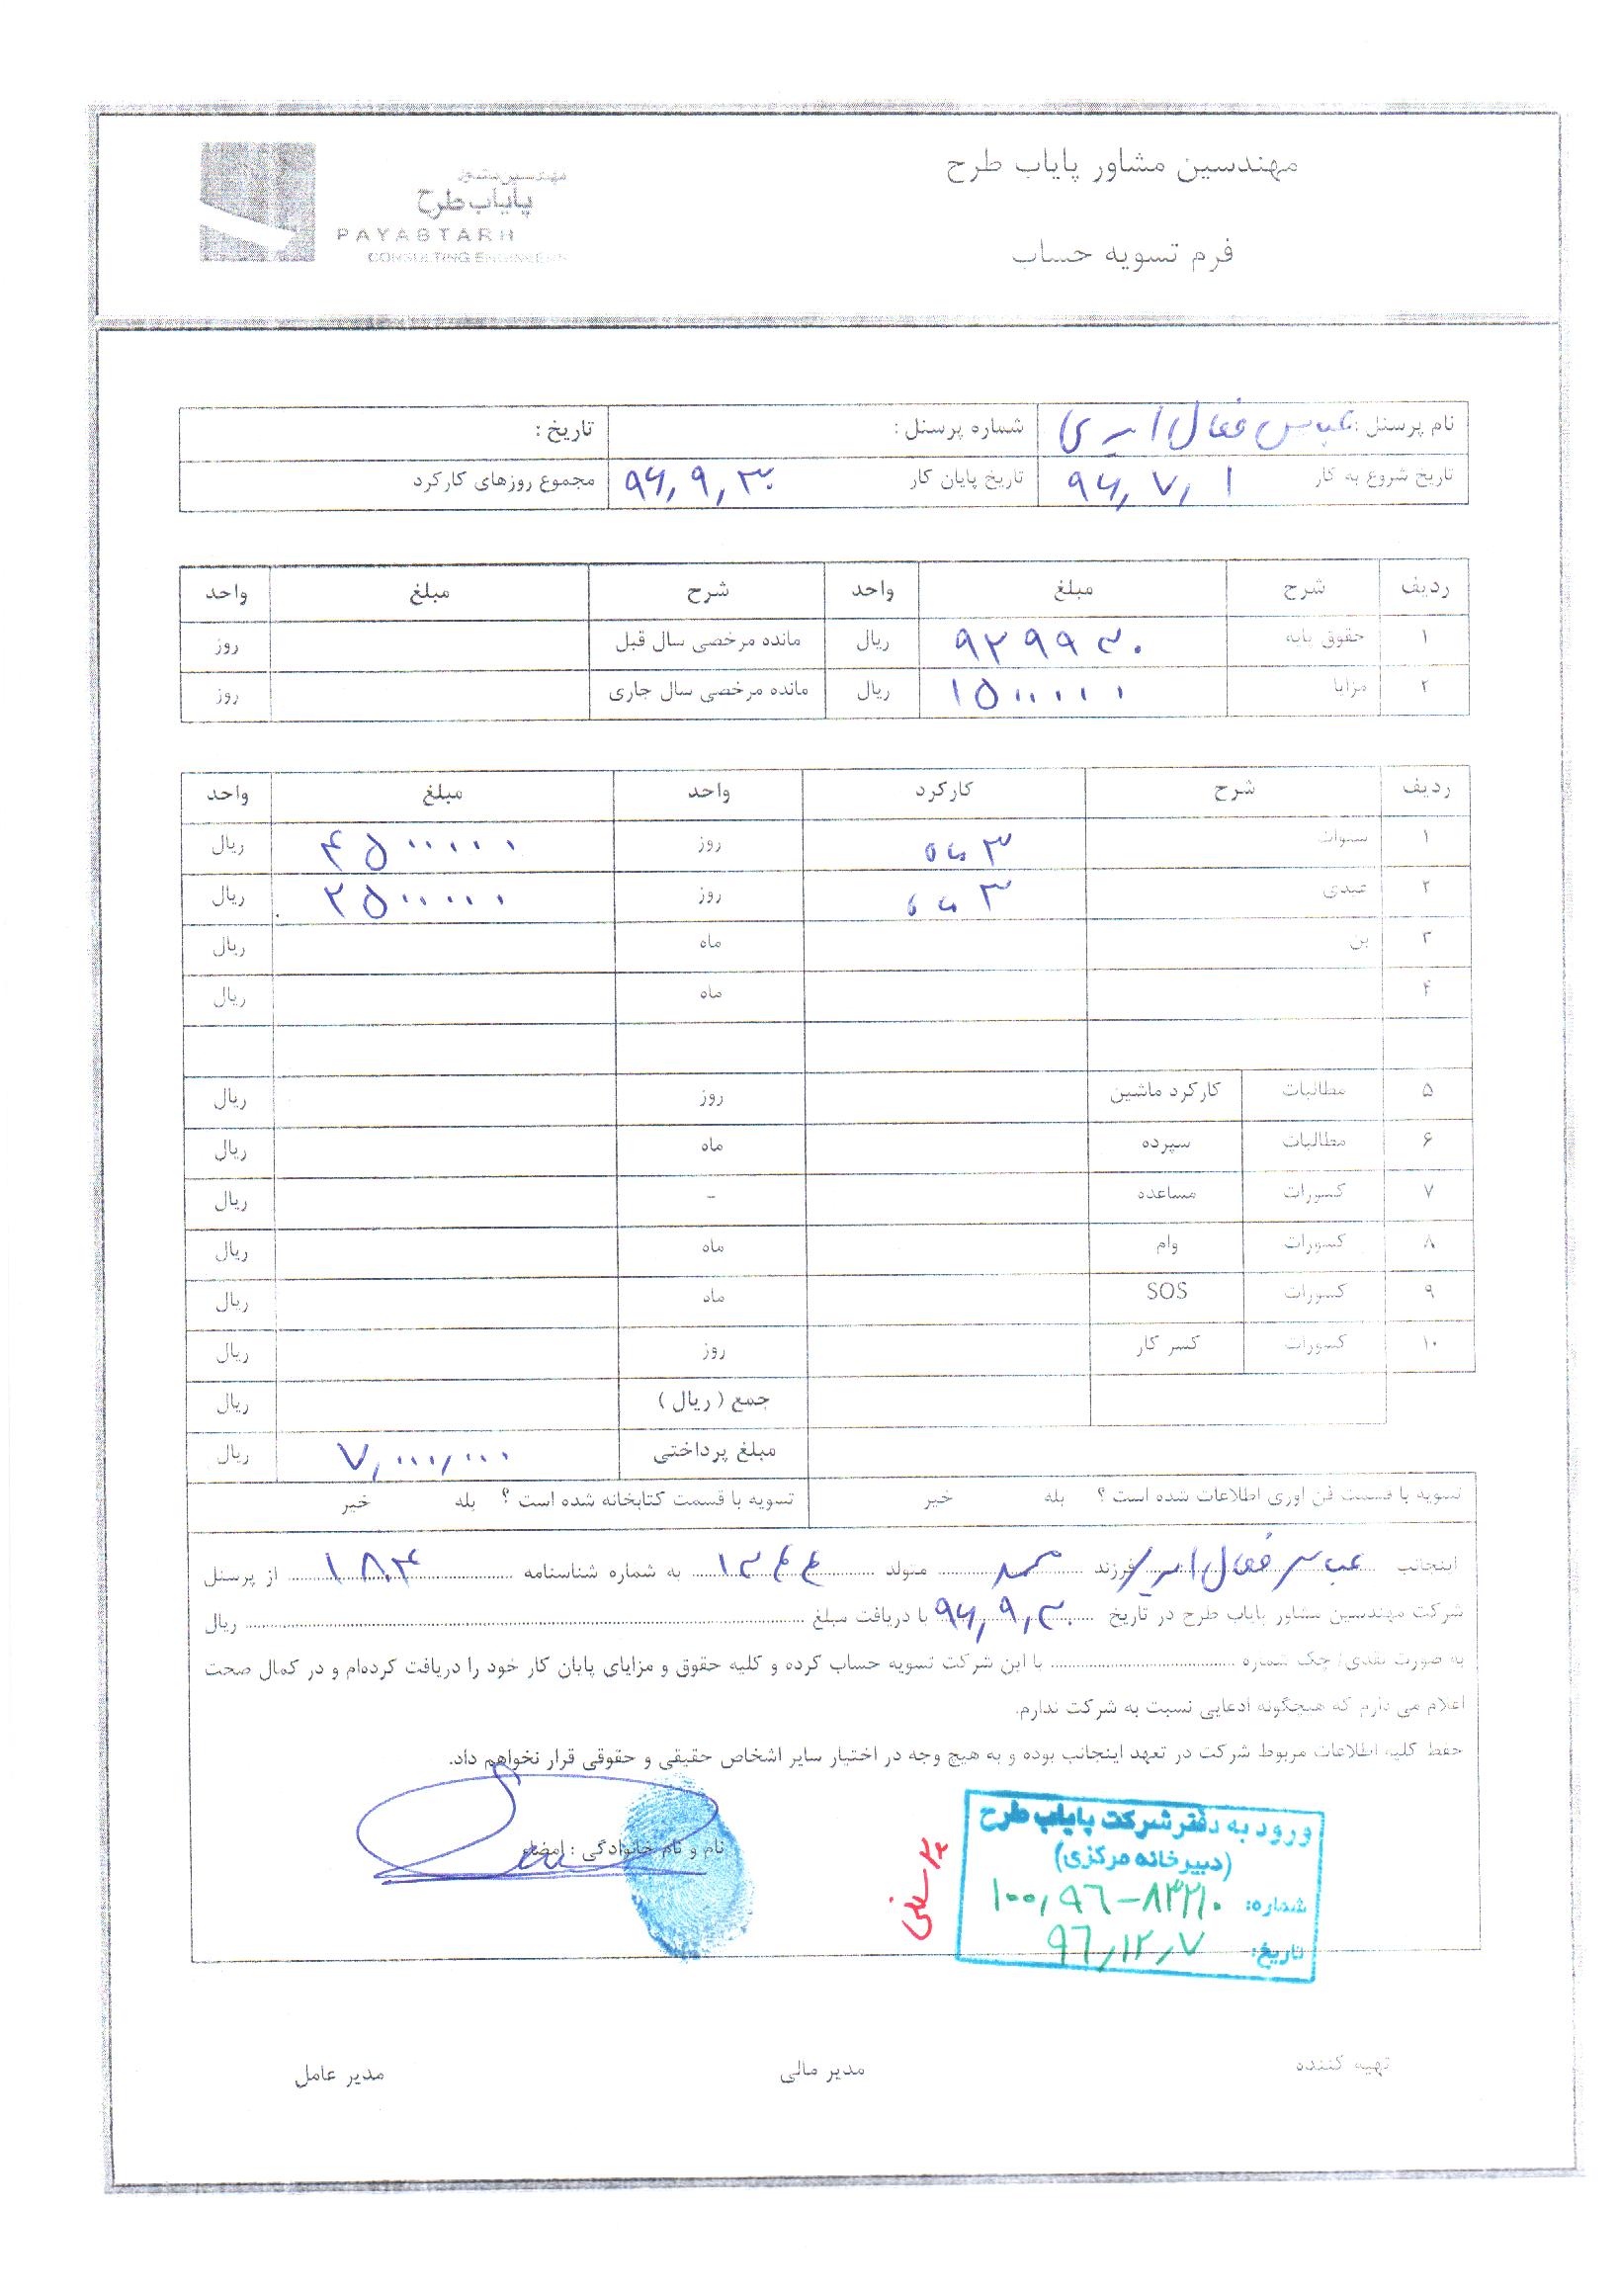 مهندسین مشاور پایاب طرح
فرم تسویه حساب
مهندسین مشاور
پایاب طرح
PAYABTARH
CONSULTING ENGINEERS
نام پرسنل : عباس فعال امیری شماره پرسنل : تاریخ :
تاریخ شروع به کار ۹۶,۷,۱ تاریخ پایان کار ۹۶,۹,۳۰ مجموع روزهای کارکرد
ردیف شرح مبلغ واحد شرح مبلغ واحد
۱ حقوق پایه ۹۲۹۹۳۰ ریال مانده مرخصی سال قبل روز
۲ مزایا ۱۵۰۰۰۰۰ ریال مانده مرخصی سال جاری روز
ردیف شرح کارکرد واحد مبلغ واحد
۱ سنوات ۳ ماه روز ۴۵۰۰۰۰۰ ریال
۲ عیدی ۳ ماه روز ۲۵۰۰۰۰۰ ریال
۳ بن ماه ریال
۴ ماه ریال
۵ مطالبات کارکرد ماشین روز ریال
۶ مطالبات سپرده ماه ریال
۷ کسورات مساعده - ریال
۸ کسورات وام ماه ریال
۹ کسورات SOS ماه ریال
۱۰ کسورات کسر کار روز ریال
جمع ( ریال ) ریال
مبلغ پرداختی ۷,۰۰۰,۰۰۰ ریال
تسویه با قسمت فن اوری اطلاعات شده است ؟ بله خیر تسویه با قسمت کتابخانه شده است ؟ بله خیر
اینجانب عباس فعال امیری فرزند محمد متولد ۱۳۴۴ به شماره شناسنامه ۱۸۰۴ از پرسنل
شرکت مهندسین مشاور پایاب طرح در تاریخ ۹۶,۹,۳۰ با دریافت مبلغ ریال
به صورت نقدی/ چک شماره با این شرکت تسویه حساب کرده و کلیه حقوق و مزایای پایان کار خود را دریافت کرده‌ام و در کمال صحت
اعلام می دارم که هیچگونه ادعایی نسبت به شرکت ندارم.
حفظ کلیه اطلاعات مربوط شرکت در تعهد اینجانب بوده و به هیچ وجه در اختیار سایر اشخاص حقیقی و حقوقی قرار نخواهم داد.
نام و نام خانوادگی : امضاء
ورود به دفتر شرکت پایاب طرح
(دبیرخانه مرکزی)
شماره: ۱۰۰,۹۶-۸۳۲۱۰
تاریخ: ۹۶,۱۲,۷
تهیه کننده مدیر مالی مدیر عامل